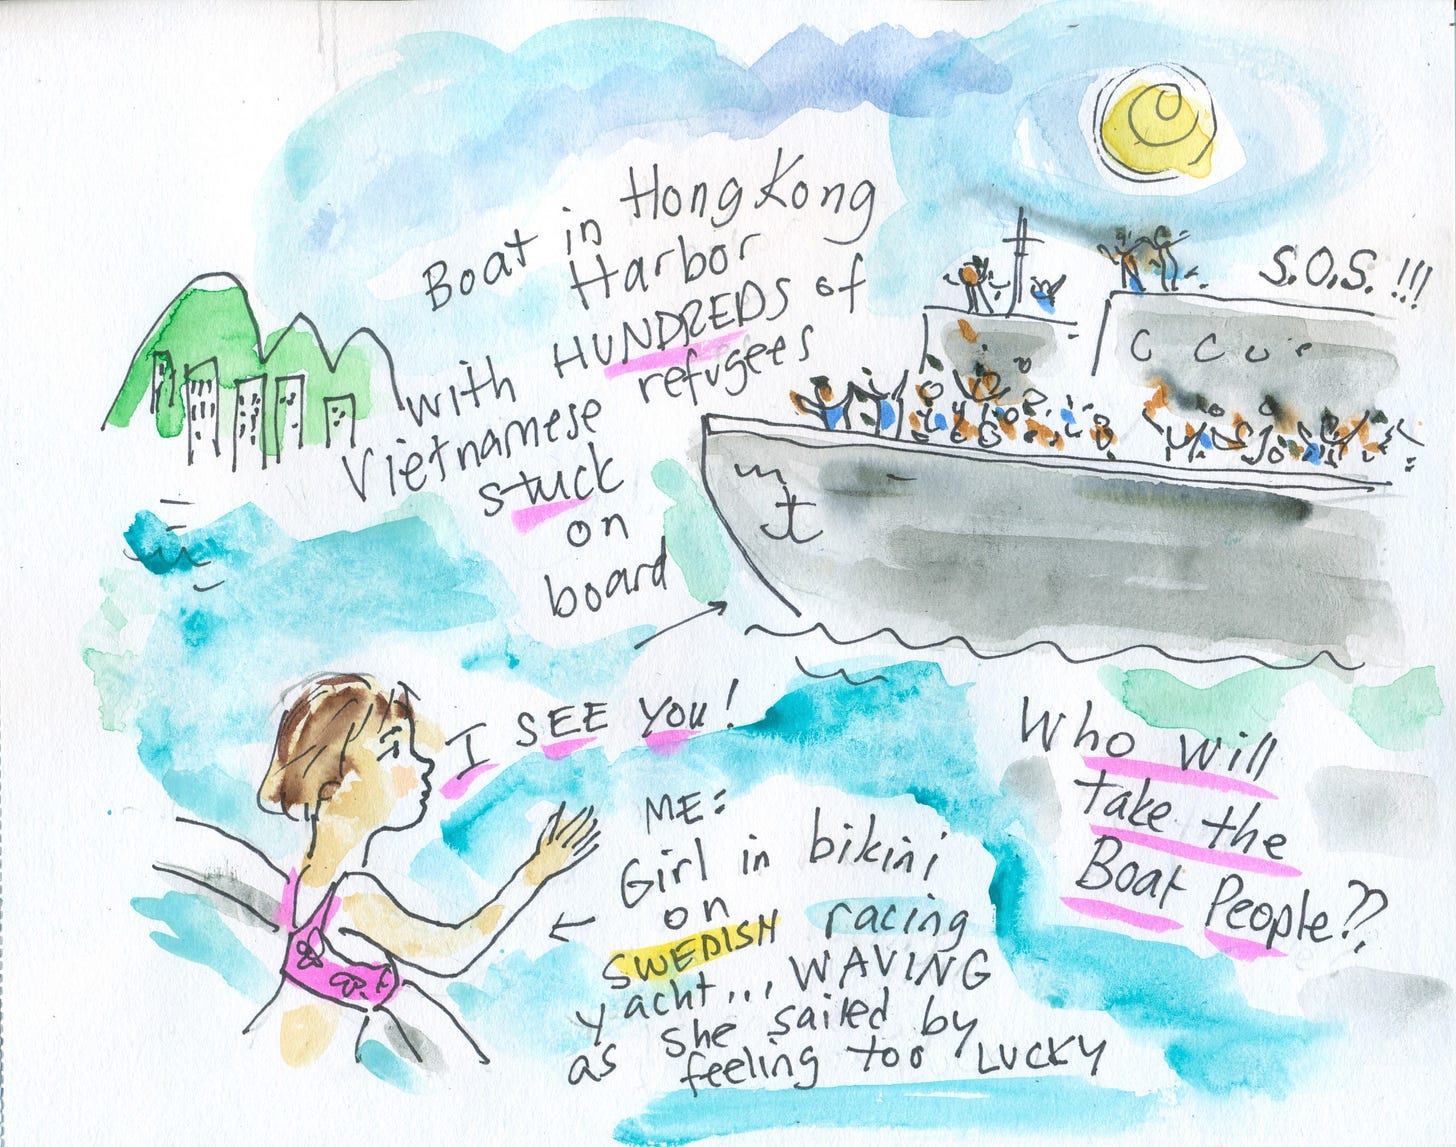 Boat in Hong Kong
Harbor
with HUNDREDS of
Vietnamese refugees
stuck
on
board
S.O.S. !!!
I SEE YOU!
ME:
Girl in bikini
on
SWEDISH racing
yacht... WAVING
as she sailed by
feeling too LUCKY
Who will
take the
Boat People??